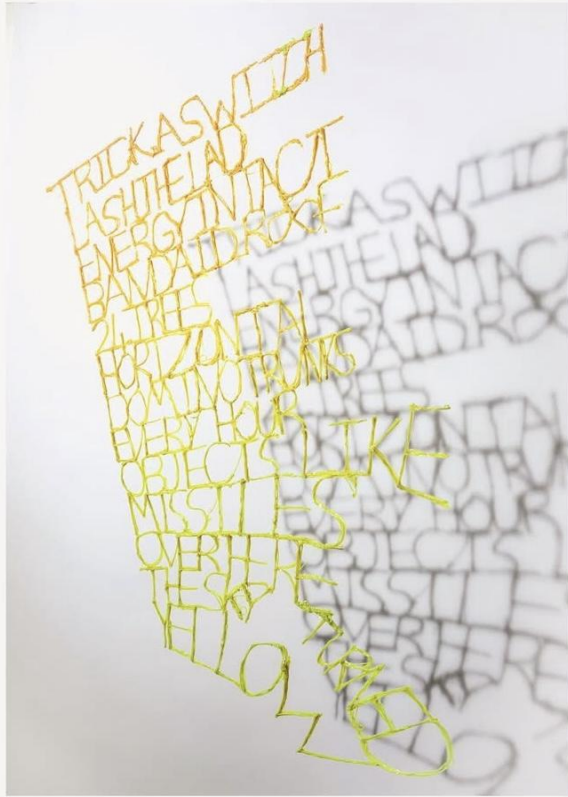 TRICKASWITCH
ASHTHELAD
ENERGYINTACT
BANDAIDROOF
24 TREES
HORIZONTAL
DOMINOTRUNKS
EVERY HOUR
OBJECTS LIKE
MISSILES
OVERHERE
THE SKY TURNED
YELLOW